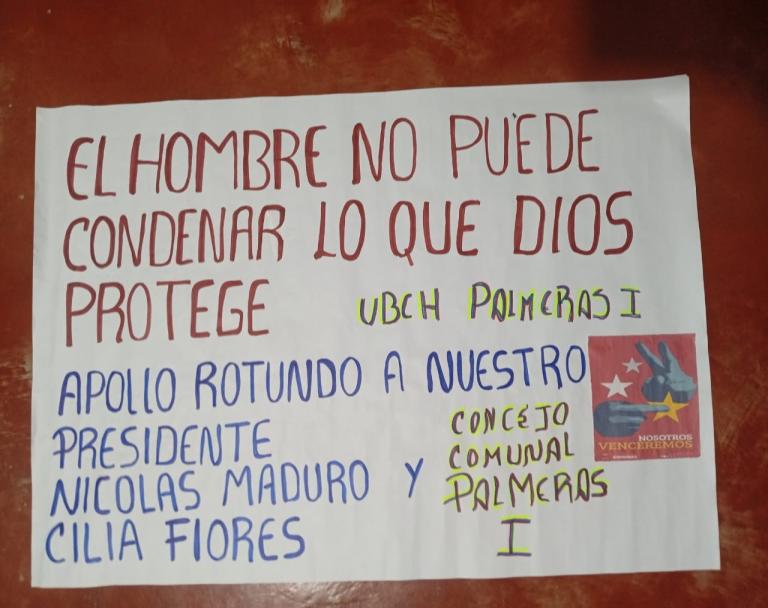 EL HOMBRE NO PUEDE
CONDENAR LO QUE DIOS
PROTEGE
UBCH PALMERAS I
APOLLO ROTUNDO A NUESTRO
PRESIDENTE
NICOLAS MADURO Y
CILIA FLORES
CONCEJO
COMUNAL
PALMERAS
I
NOSOTROS
VENCEREMOS